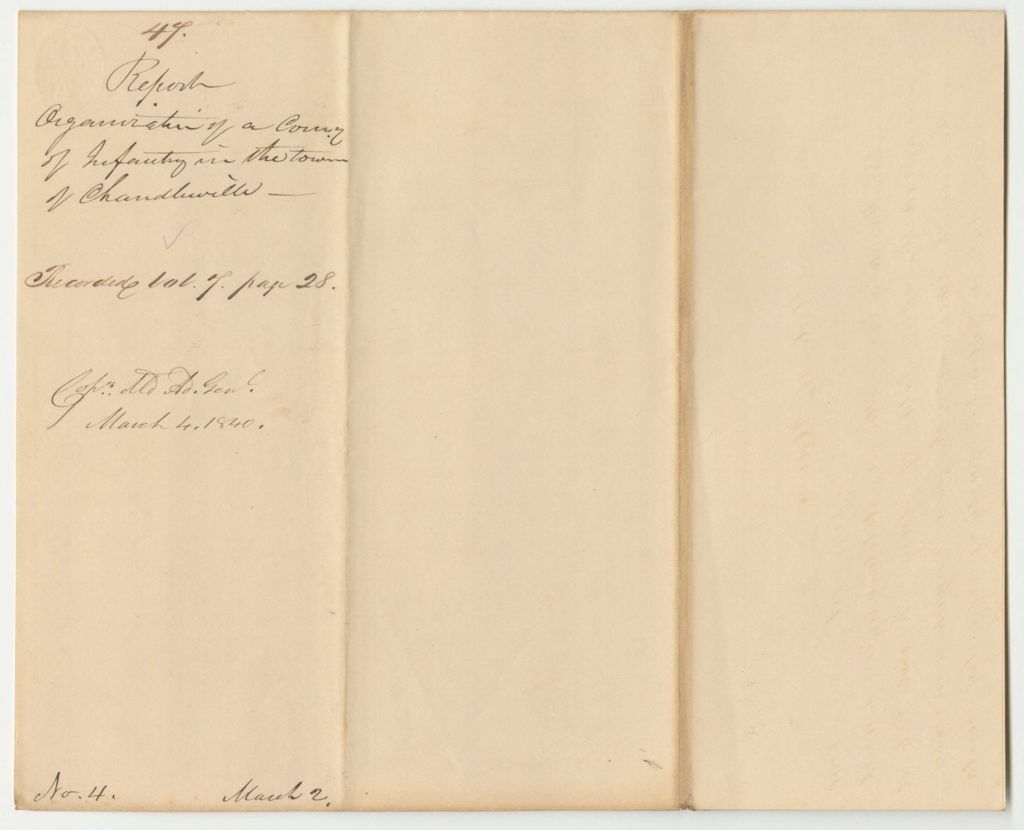 47.
Report
Organization of a Comy
of Infantry in the town
of Chandlerville —
Recorded Vol. 7. page 28.
Copy. dld Ad. Genl.
March 4. 1840.
No. 4. March 2.